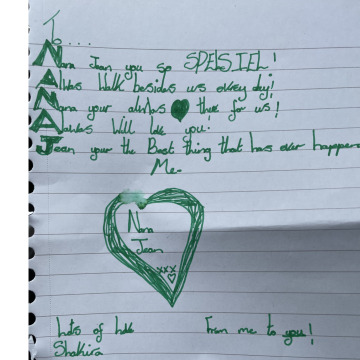 To....
Nana Jean you so SPELSIEL!
Allwas Walk besides us evrey day!
Nana your allwas thier for us!
Alawas Will love you!
Jean your the Best thing that has ever happened
Me.
Nana
Jean
xxx
Lots of love From me to you!
Shakira